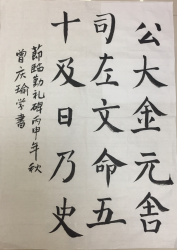 公大金元舍
司左文命五
十及日乃史
節臨勤礼碑丙申年秋
曾庆瑜学書